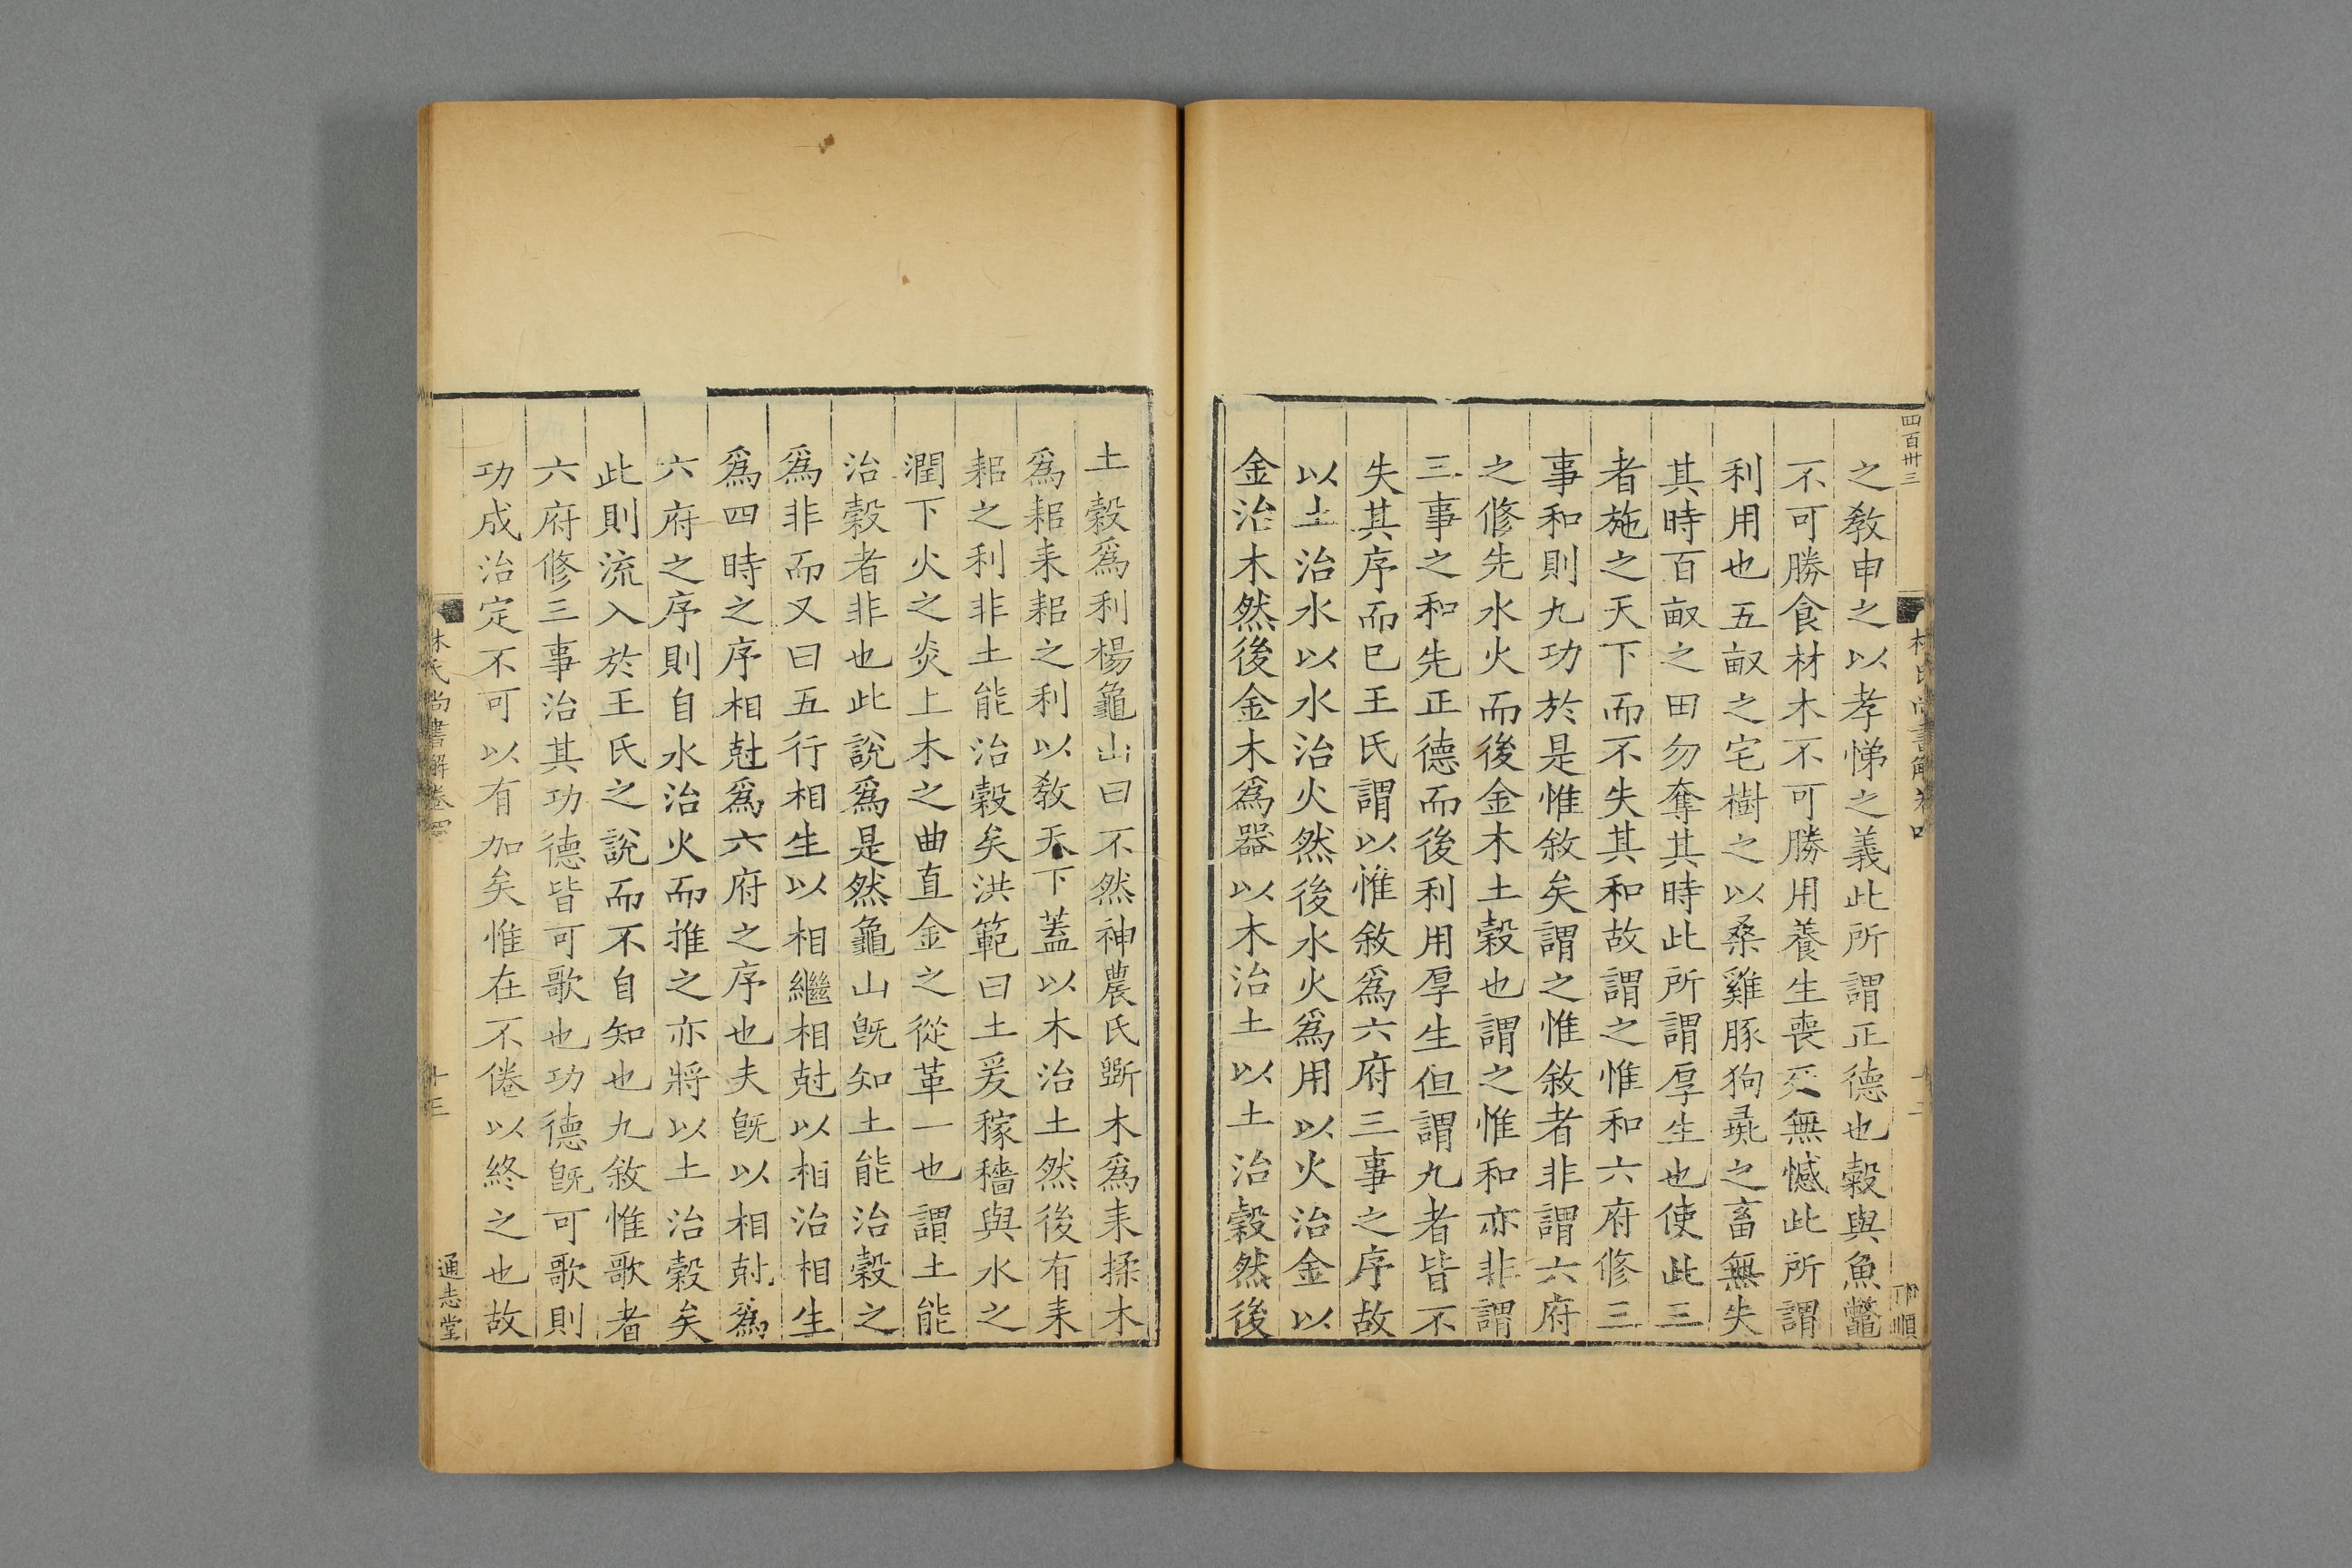 四百卅三
之敎申之以孝悌之義此所謂正德也穀與魚鼈
不可勝食材木不可勝用養生喪死無憾此所謂
利用也五畝之宅樹之以桑雞豚狗彘之畜無失
其時百畝之田勿奪其時此所謂厚生也使此三
者施之天下而不失其和故謂之惟和六府修三
事和則九功於是惟敘矣謂之惟敘者非謂六府
之修先水火而後金木土穀也謂之惟和亦非謂
三事之和先正德而後利用厚生但謂九者皆不
失其序而已王氏謂以惟敘爲六府三事之序故
以土治水以水治火然後水火爲用以火治金以
金治木然後金木爲器以木治土以土治穀然後
土穀爲利楊龜山曰不然神農氏斲木爲耒揉木
爲耜耒耜之利以敎天下蓋以木治土然後有耒
耜之利非土能治穀矣洪範曰土爰稼穡與水之
潤下火之炎上木之曲直金之從革一也謂土能
治穀者非也此說爲是然龜山旣知土能治穀之
爲非而又曰五行相生以相繼相尅以相治相生
爲四時之序相尅爲六府之序也夫旣以相尅爲
六府之序則自水治火而推之亦將以土治穀矣
此則流入於王氏之說而不自知也九敘惟歌者
六府修三事治其功德皆可歌也功德旣可歌則
功成治定不可以有加矣惟在不倦以終之也故
林氏尚書解卷四
十三
通志堂